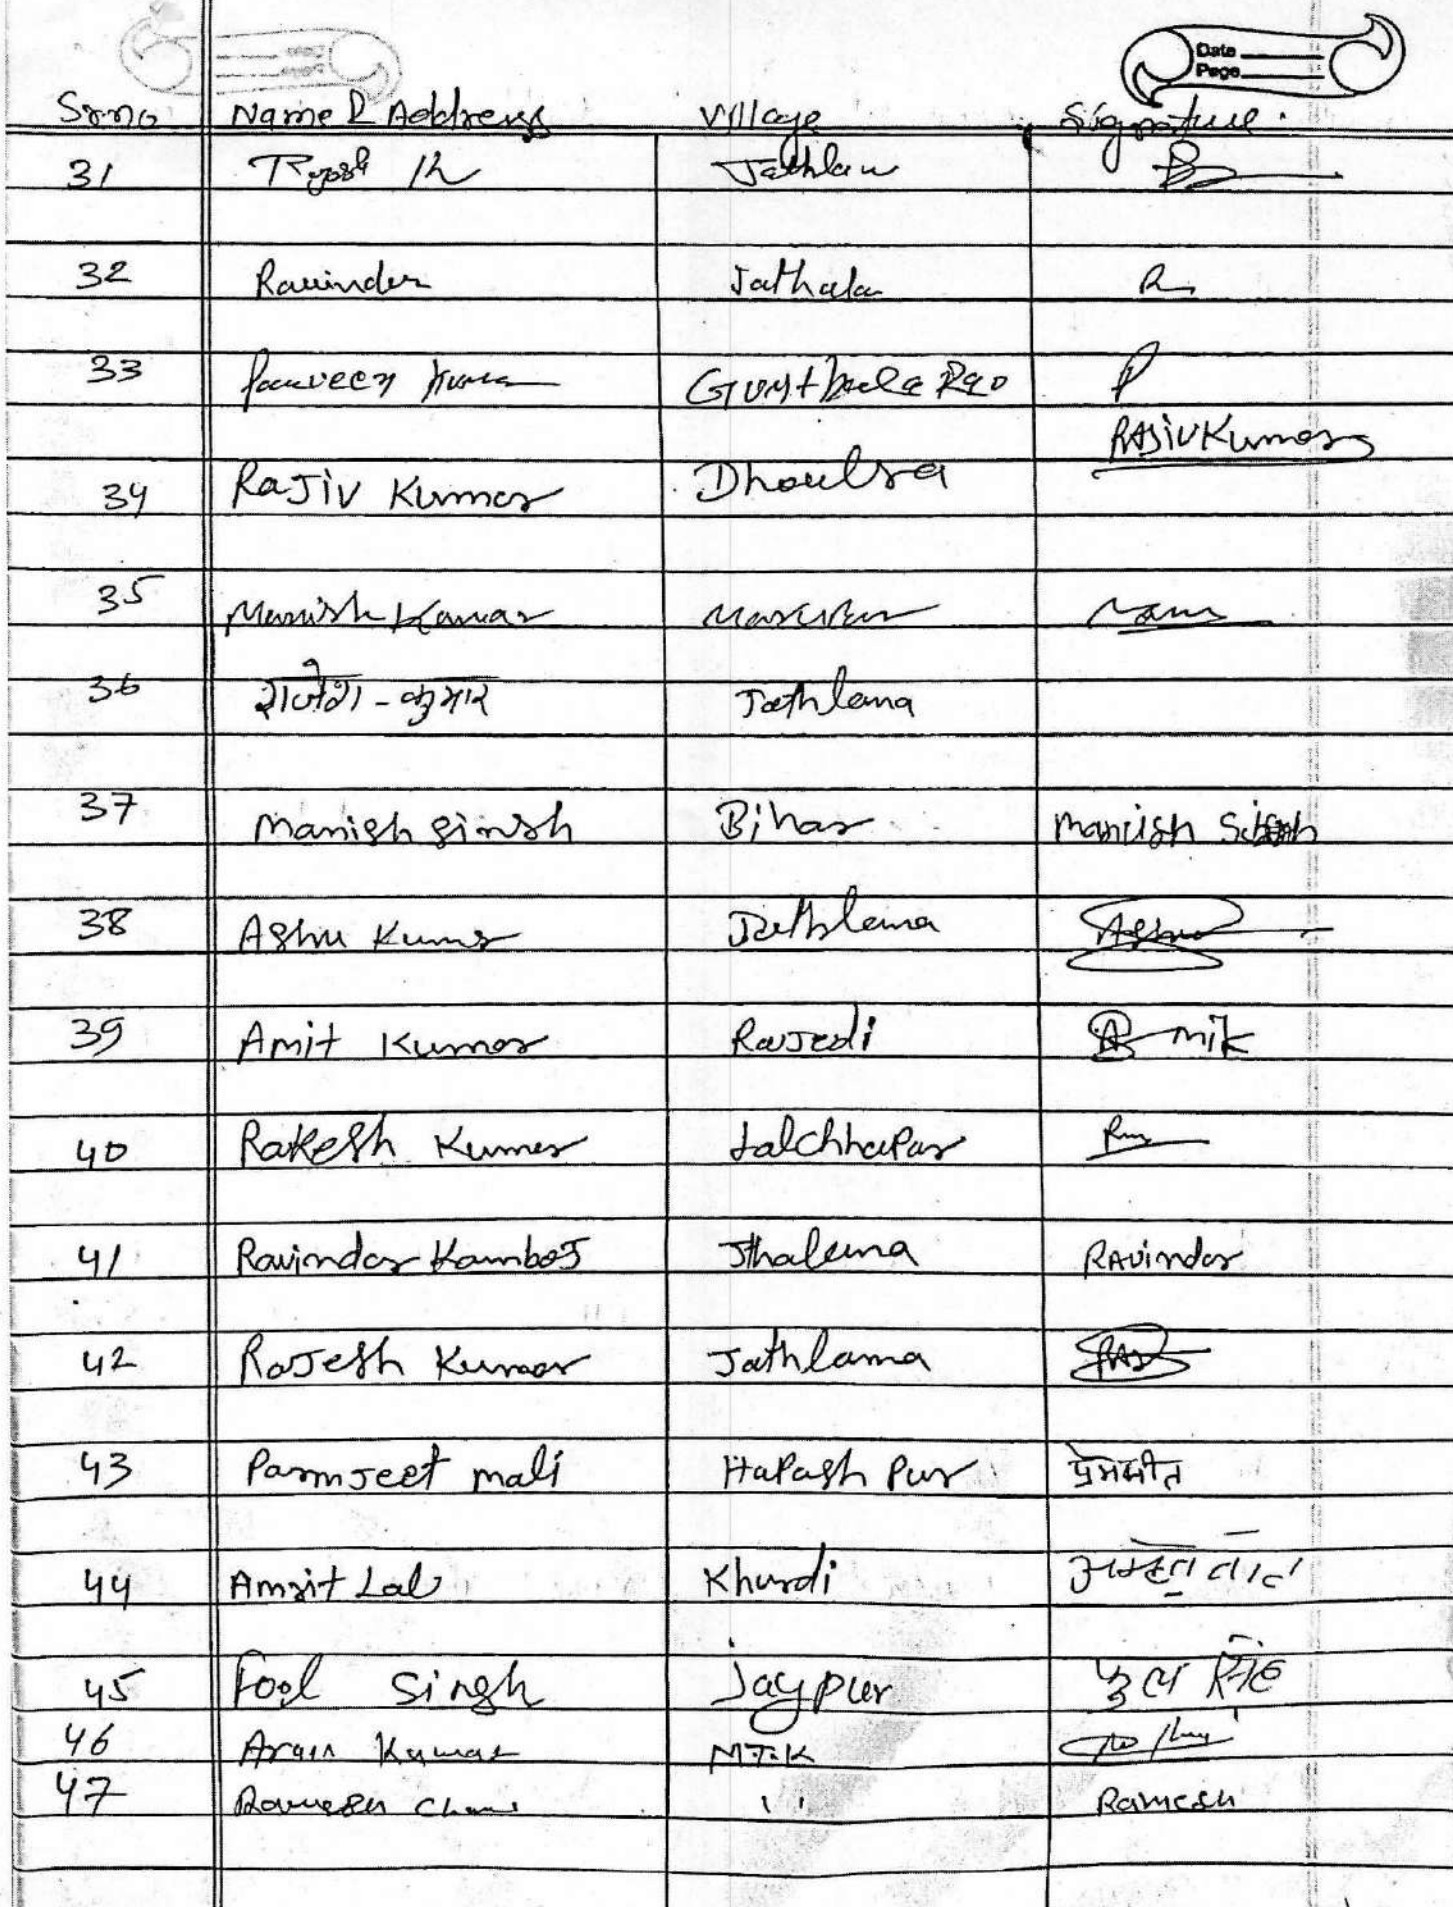 Date
Page
Sr no Name & Address Village Signature.
31
32 Ravinder Jathala R
33 Parveen Kumar Gumthala Rao P
RAJIV Kumar
34 RaJiv Kumar Dhoulra
35 Manish Kumar
36 राजेश - कुमार Jathlana
37 Manish singh Bihar Manish Singh
38 Ashu Kumar Jathlana Ashu
39 Amit Kumar RaJedi
40 Rakesh Kumar LalChhaPar
41 Ravindar KamboJ Jthalana RAvindar
42 RaJesh Kumar Jathlana RAJ
43 ParmJeet mali HaPash Pur
44 Amrit Lal Khurdi
45 Fool Singh Jaypur फुल सिंह
46 Arun Kumar MTK
47 Ramesh Ramesh